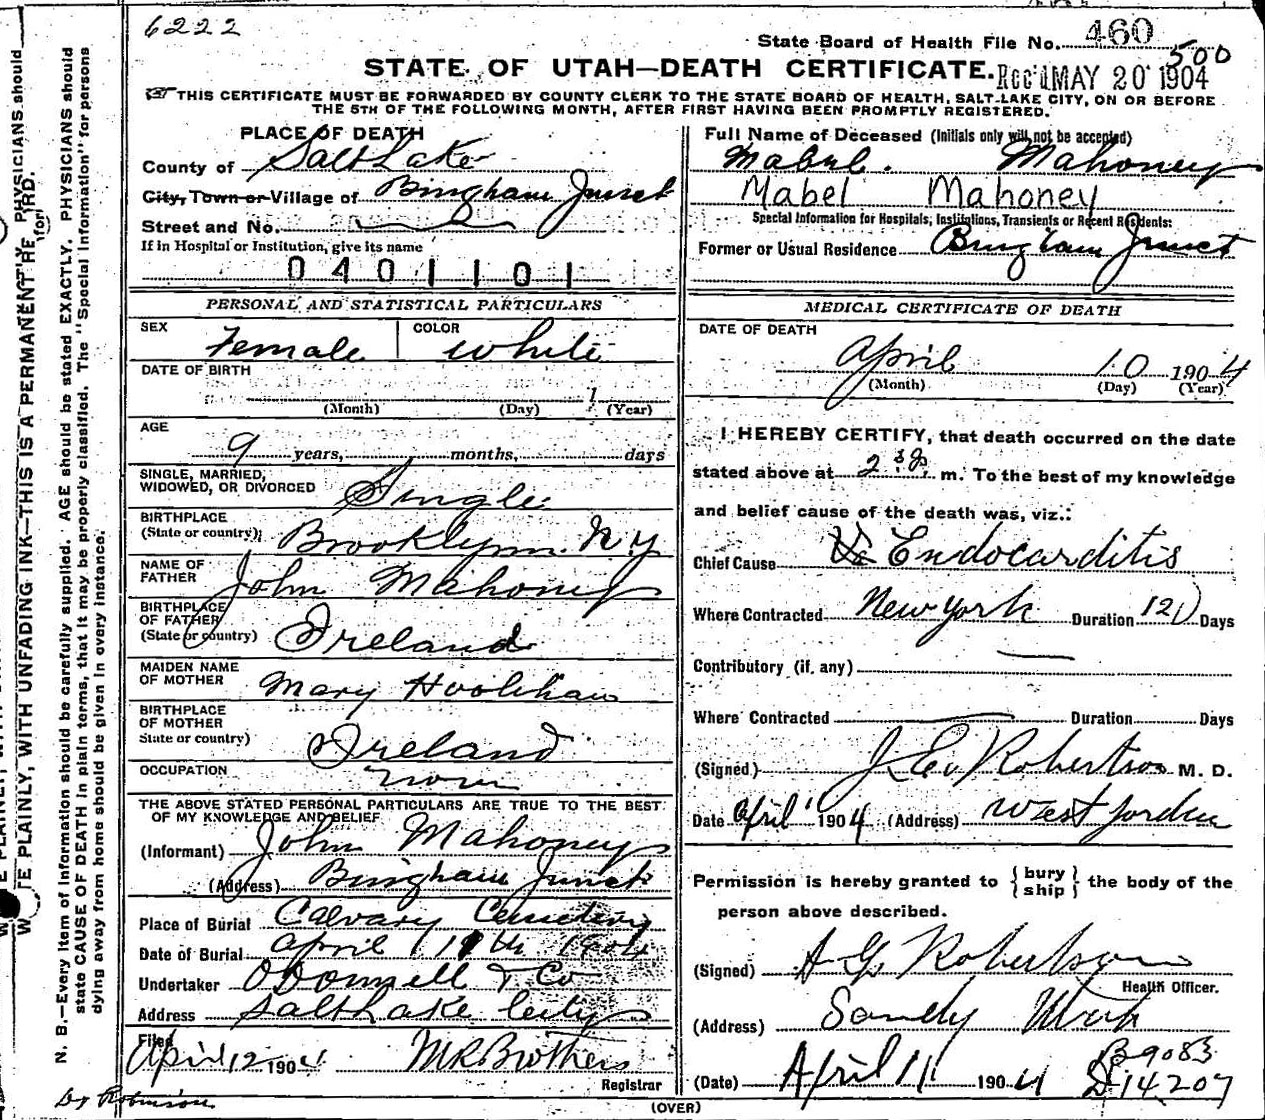 6222
State Board of Health File No. 460
500
STATE OF UTAH—DEATH CERTIFICATE.
Rec'd MAY 20 1904
THIS CERTIFICATE MUST BE FORWARDED BY COUNTY CLERK TO THE STATE BOARD OF HEALTH, SALT LAKE CITY, ON OR BEFORE
THE 5TH OF THE FOLLOWING MONTH, AFTER FIRST HAVING BEEN PROMPTLY REGISTERED.
PLACE OF DEATH
County of Salt Lake
City, Town or Village of Bingham Junct
Street and No.
If in Hospital or Institution, give its name
0401101
Full Name of Deceased (Initials only will not be accepted)
Mabel. Mahoney
Mabel Mahoney
Special Information for Hospitals, Institutions, Transients or Recent Residents:
Former or Usual Residence Bingham Junct
PERSONAL AND STATISTICAL PARTICULARS
SEX Female
COLOR White
DATE OF BIRTH 1
(Month) (Day) (Year)
AGE
9 years, months, days
SINGLE, MARRIED,
WIDOWED, OR DIVORCED Single
BIRTHPLACE
(State or country); Brooklynn. N Y
NAME OF
FATHER John Mahoney
BIRTHPLACE
OF FATHER
(State or country) Ireland
MAIDEN NAME
OF MOTHER Mary Hoolihan
BIRTHPLACE
OF MOTHER
State or country) Ireland
OCCUPATION none
THE ABOVE STATED PERSONAL PARTICULARS ARE TRUE TO THE BEST
OF MY KNOWLEDGE AND BELIEF
(Informant) John Mahoney
(Address) Bingham Junct
Place of Burial Calvary Cemetery
Date of Burial April 11th 1904
Undertaker O'Donnell & Co
Address Salt Lake City
Filed
April 12 1904 M R Brothers
Registrar
MEDICAL CERTIFICATE OF DEATH
DATE OF DEATH
April 10 1904
(Month) (Day) (Year)
I HEREBY CERTIFY, that death occurred on the date
stated above at 2 30 p. m. To the best of my knowledge
and belief cause of the death was, viz.:
Chief Cause Endocarditis
Where Contracted New York Duration 121 Days
Contributory (if any)
Where Contracted Duration Days
(Signed.) J. E. Robertson M. D.
Date April 1904 (Address) West Jordan
Permission is hereby granted to { bury ship } the body of the
person above described.
(Signed) A G Robertson
Health Officer.
(Address) Sandy Utah
B 9083
(Date) April 11 1904 D 14207
(OVER)
Dr Robinson
N. B.—Every item of information should be carefully supplied. AGE should be stated EXACTLY. PHYSICIANS should
state CAUSE OF DEATH in plain terms, that it may be properly classified. The "Special Information" for persons
dying away from home should be given in every instance.
PLAINLY, WITH UNFADING INK—THIS IS A PERMANENT
PHYSICIANS should